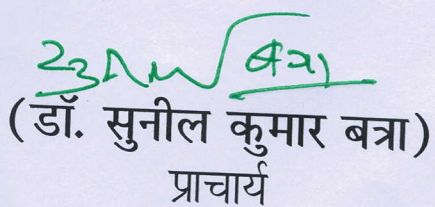 बत्रा
(डॉ. सुनील कुमार बत्रा)
प्राचार्य